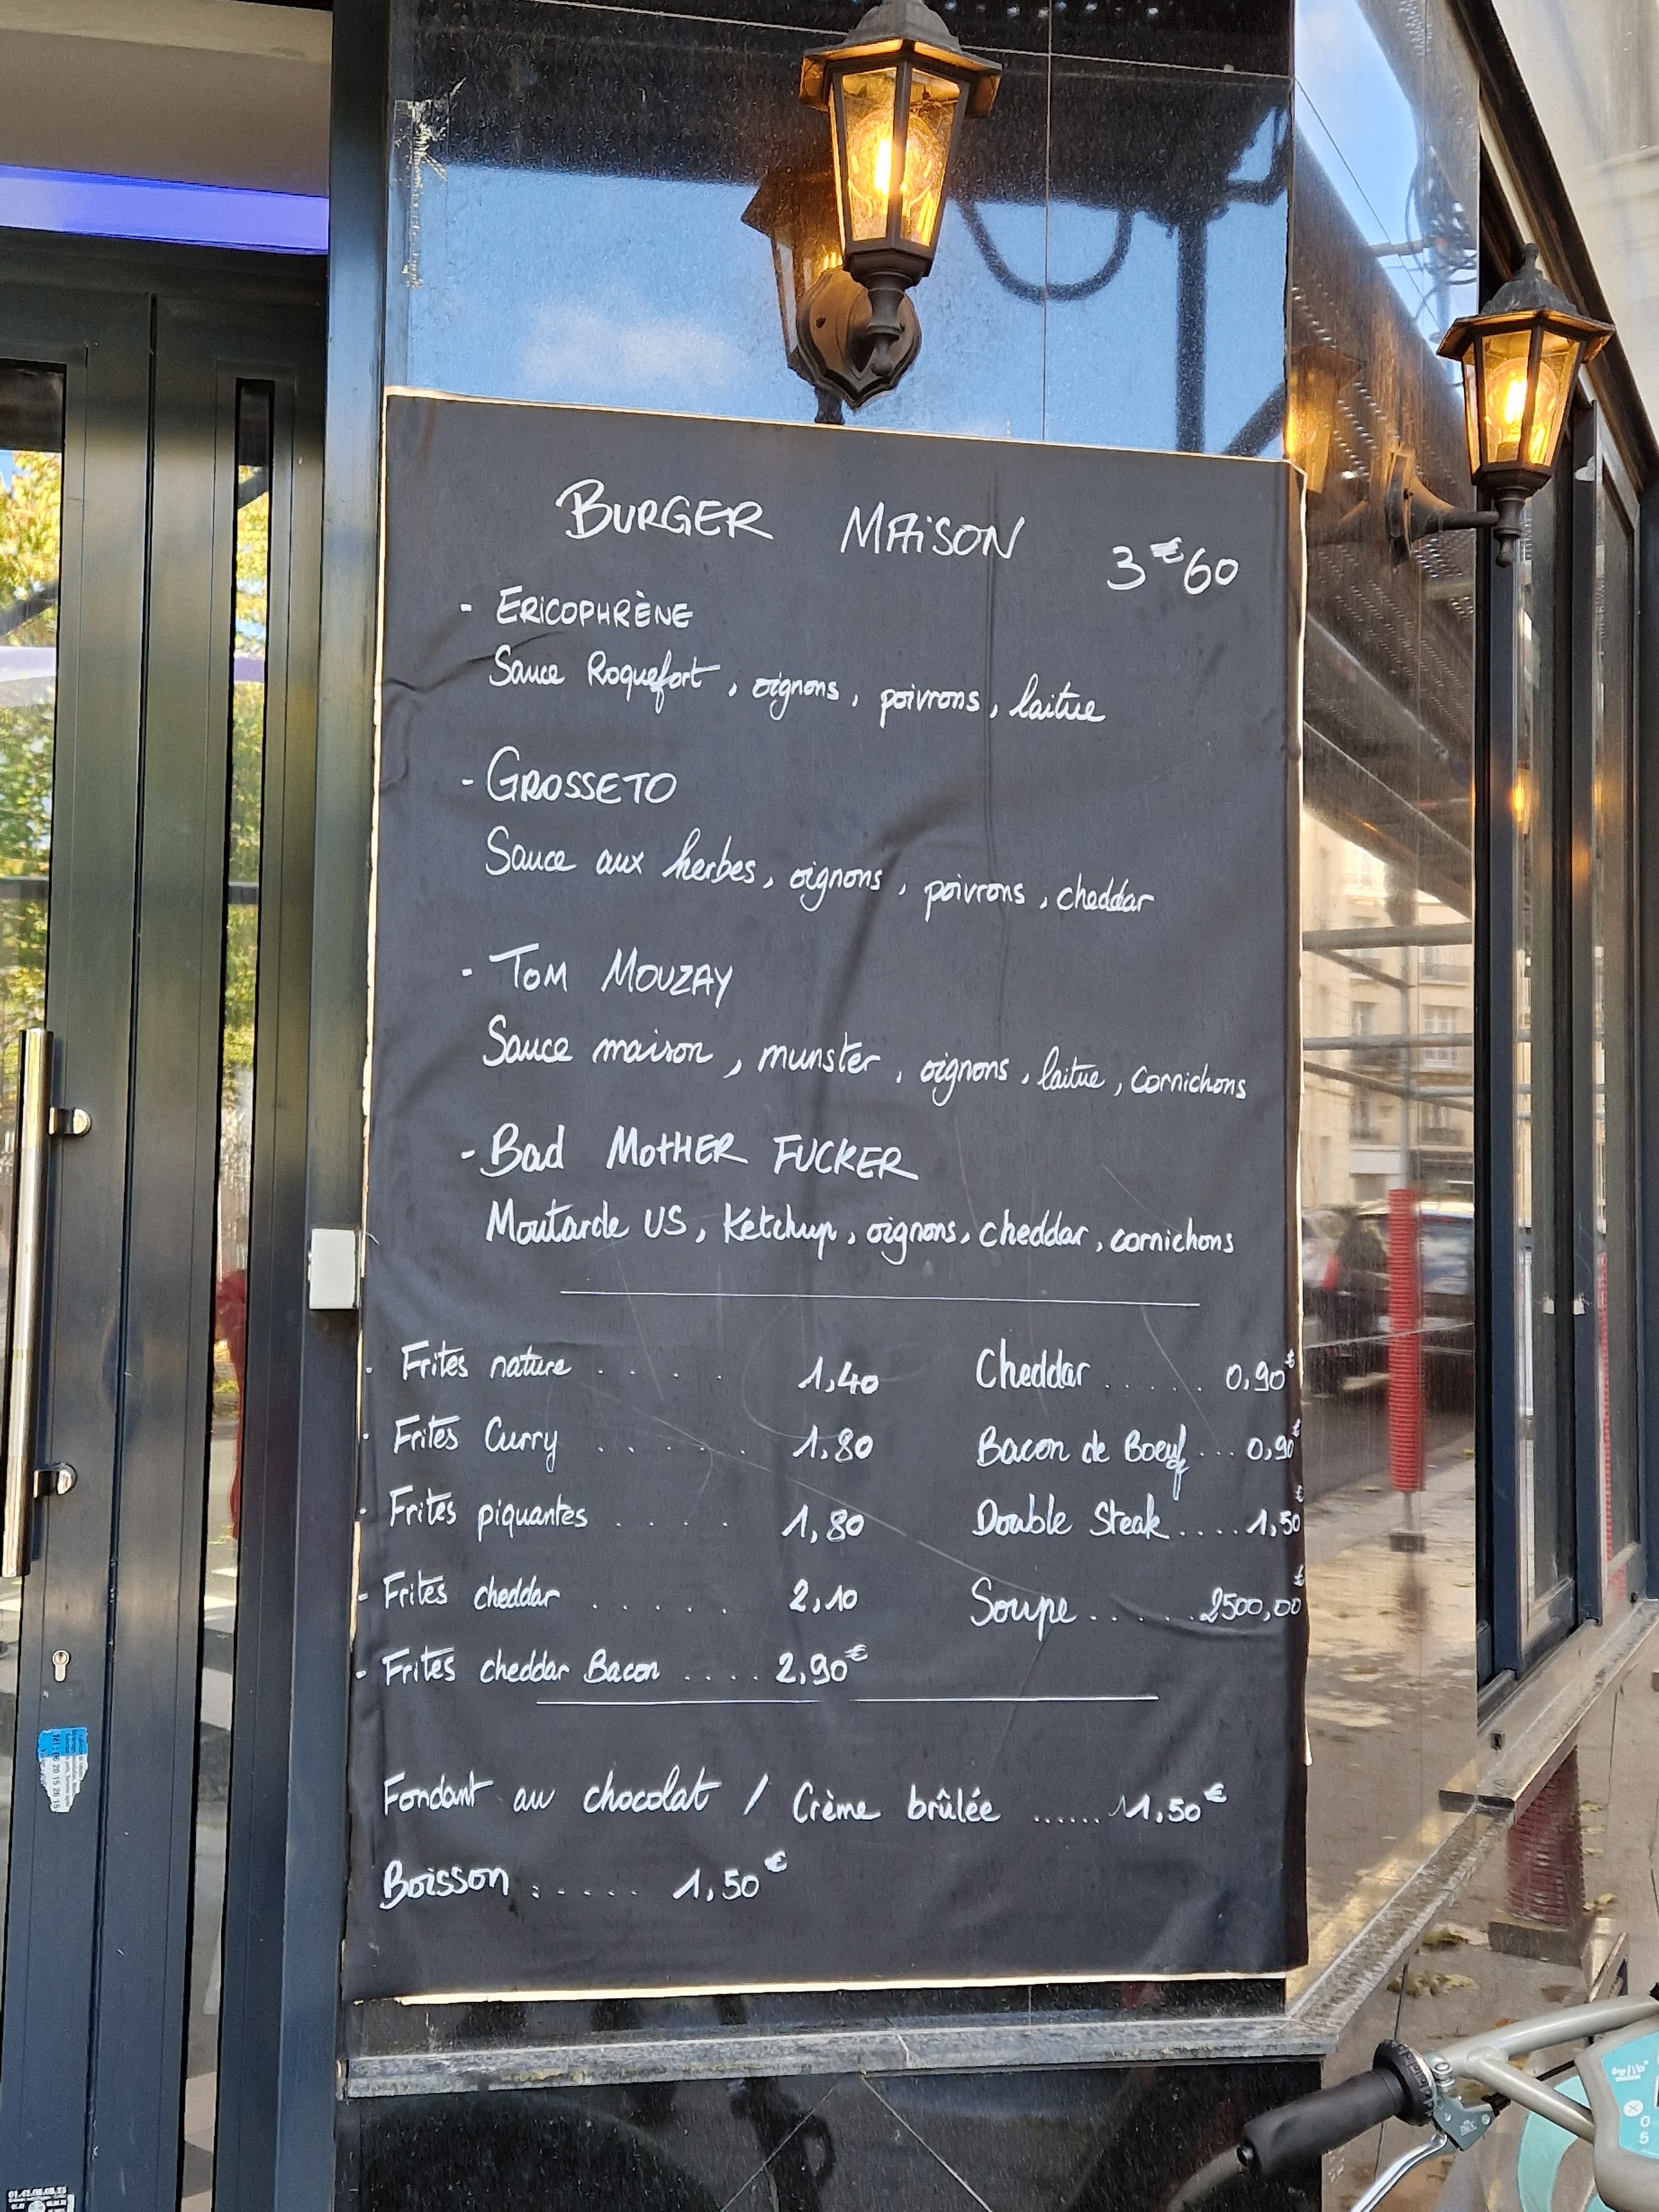 BURGER MAiSON 3€60
- ERiCOPHRÈNE
Sauce Roquefort, oignons, poivrons, laitue
- GROSSETO
Sauce aux herbes, oignons, poivrons, cheddar
- TOM MOUZAY
Sauce maison, munster, oignons, laitue, cornichons
- Bad MOTHER FUCKER
Moutarde US, Ketchup, oignons, cheddar, cornichons
- Frites nature ..... 1,40
- Frites Curry ...... 1,80
- Frites piquantes ..... 1,80
- Frites cheddar ...... 2,10
- Frites cheddar Bacon .... 2,90€
Cheddar ..... 0,90€
Bacon de Boeuf ... 0,90€
Double Steak .... 1,50€
Soupe ...... 2500,00€
Fondant au chocolat / Crème brûlée ...... 1,50€
Boisson ...... 1,50€